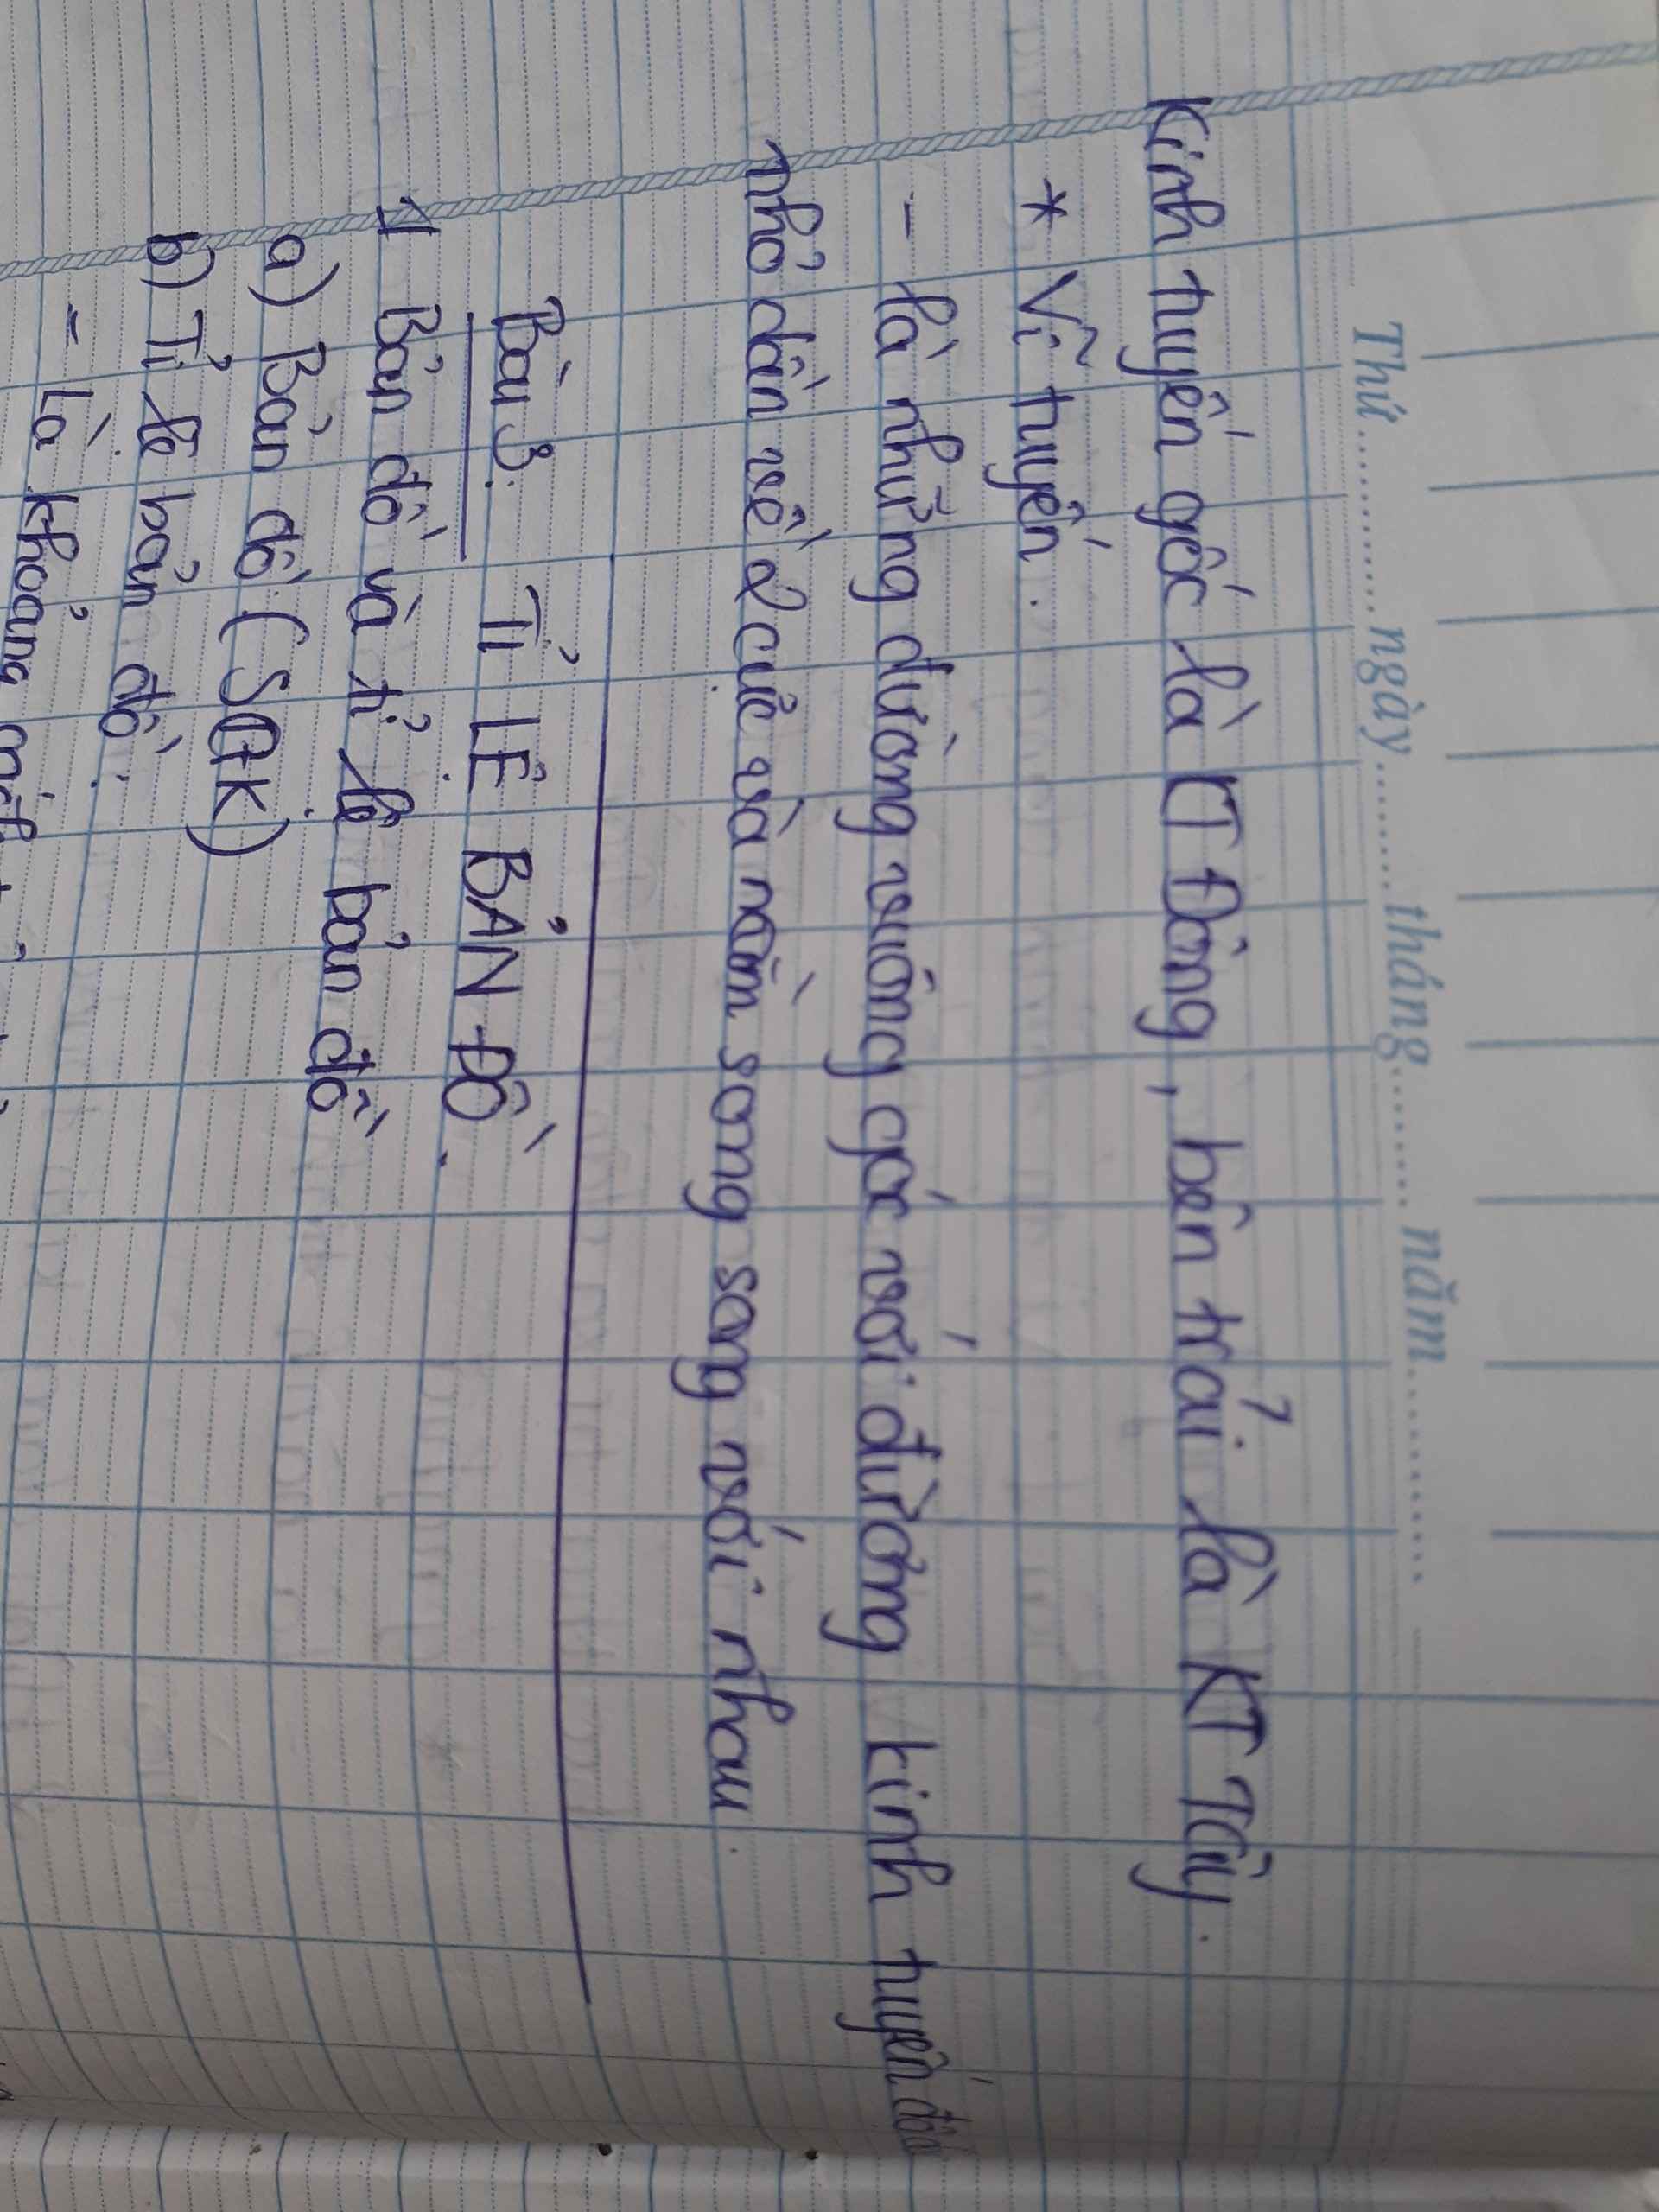 Thứ ngày tháng năm
Kinh tuyến gốc là KT Đông, bên trải là KT Tây.
* Vĩ tuyến.
- là những đường vuông góc với đường kinh tuyến độ
nhỏ dần về 2 cực và nằm song song với nhau.
Bài 3: TỈ LỆ BẢN ĐỒ.
1/ Bản đồ và tỉ lệ bản đồ
a) Bản đồ (SGK)
b) Tỉ lệ bản đồ:
- Là khoảng